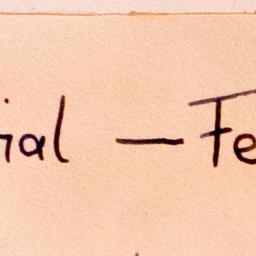 ial — Fe